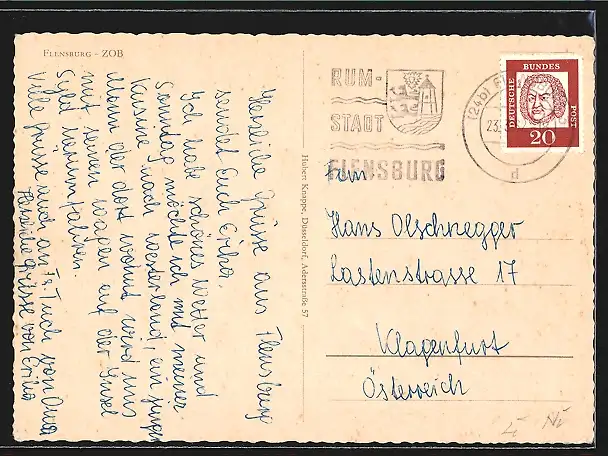 FLENSBURG – ZOB
Herzliche Grüsse aus Flensburg
sendet Euch Erika.
Ich habe schönes Wetter und
Sonntag möchte ich mit meiner
Kusine nach Westerland, ein junger
Mann der dort wohnt wird uns
mit seinen Wagen auf der Insel
Sylt herumfahren.
Viele Grüsse auch an Fr. Tuch von Oma
Herzliche Grüsse von Erika
Hubert Knoppe, Düsseldorf, Adersstraße 57
RUM-
STADT
FLENSBURG
(24b)
23.
d
DEUTSCHE
BUNDES
POST
20
Hans Olschnegger
Lastenstrasse 17
Klagenfurt
Österreich